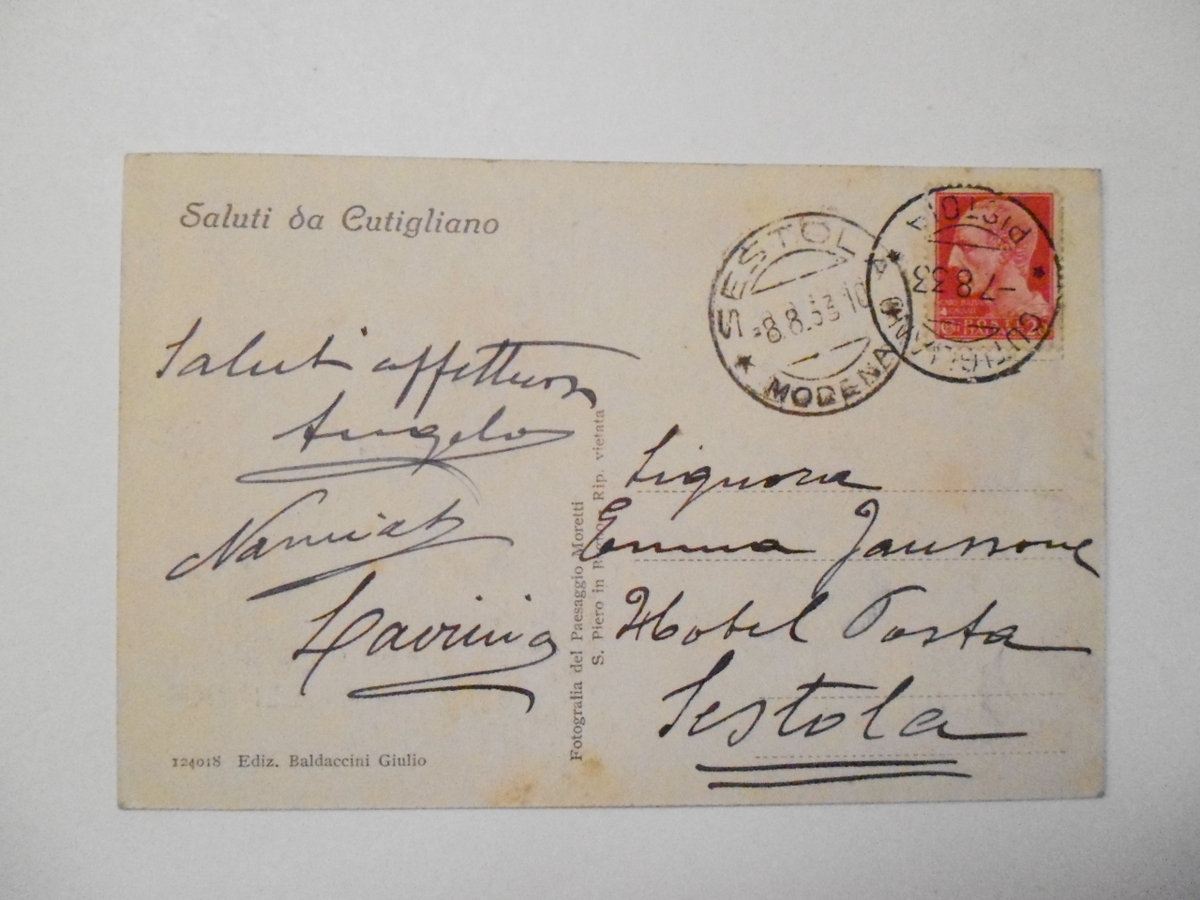 Saluti da Cutigliano
Saluti affettuosi
Angelo
Lavinia
124018 Ediz. Baldaccini Giulio
Fotografia del Paesaggio Moretti
S. Piero in Rip. vietata
SESTOLA
-8.8.33 10
MODENA
PISTOIA
-7.8.33
CUTIGLIANO
Signora
Emma
Hotel Posta
Sestola